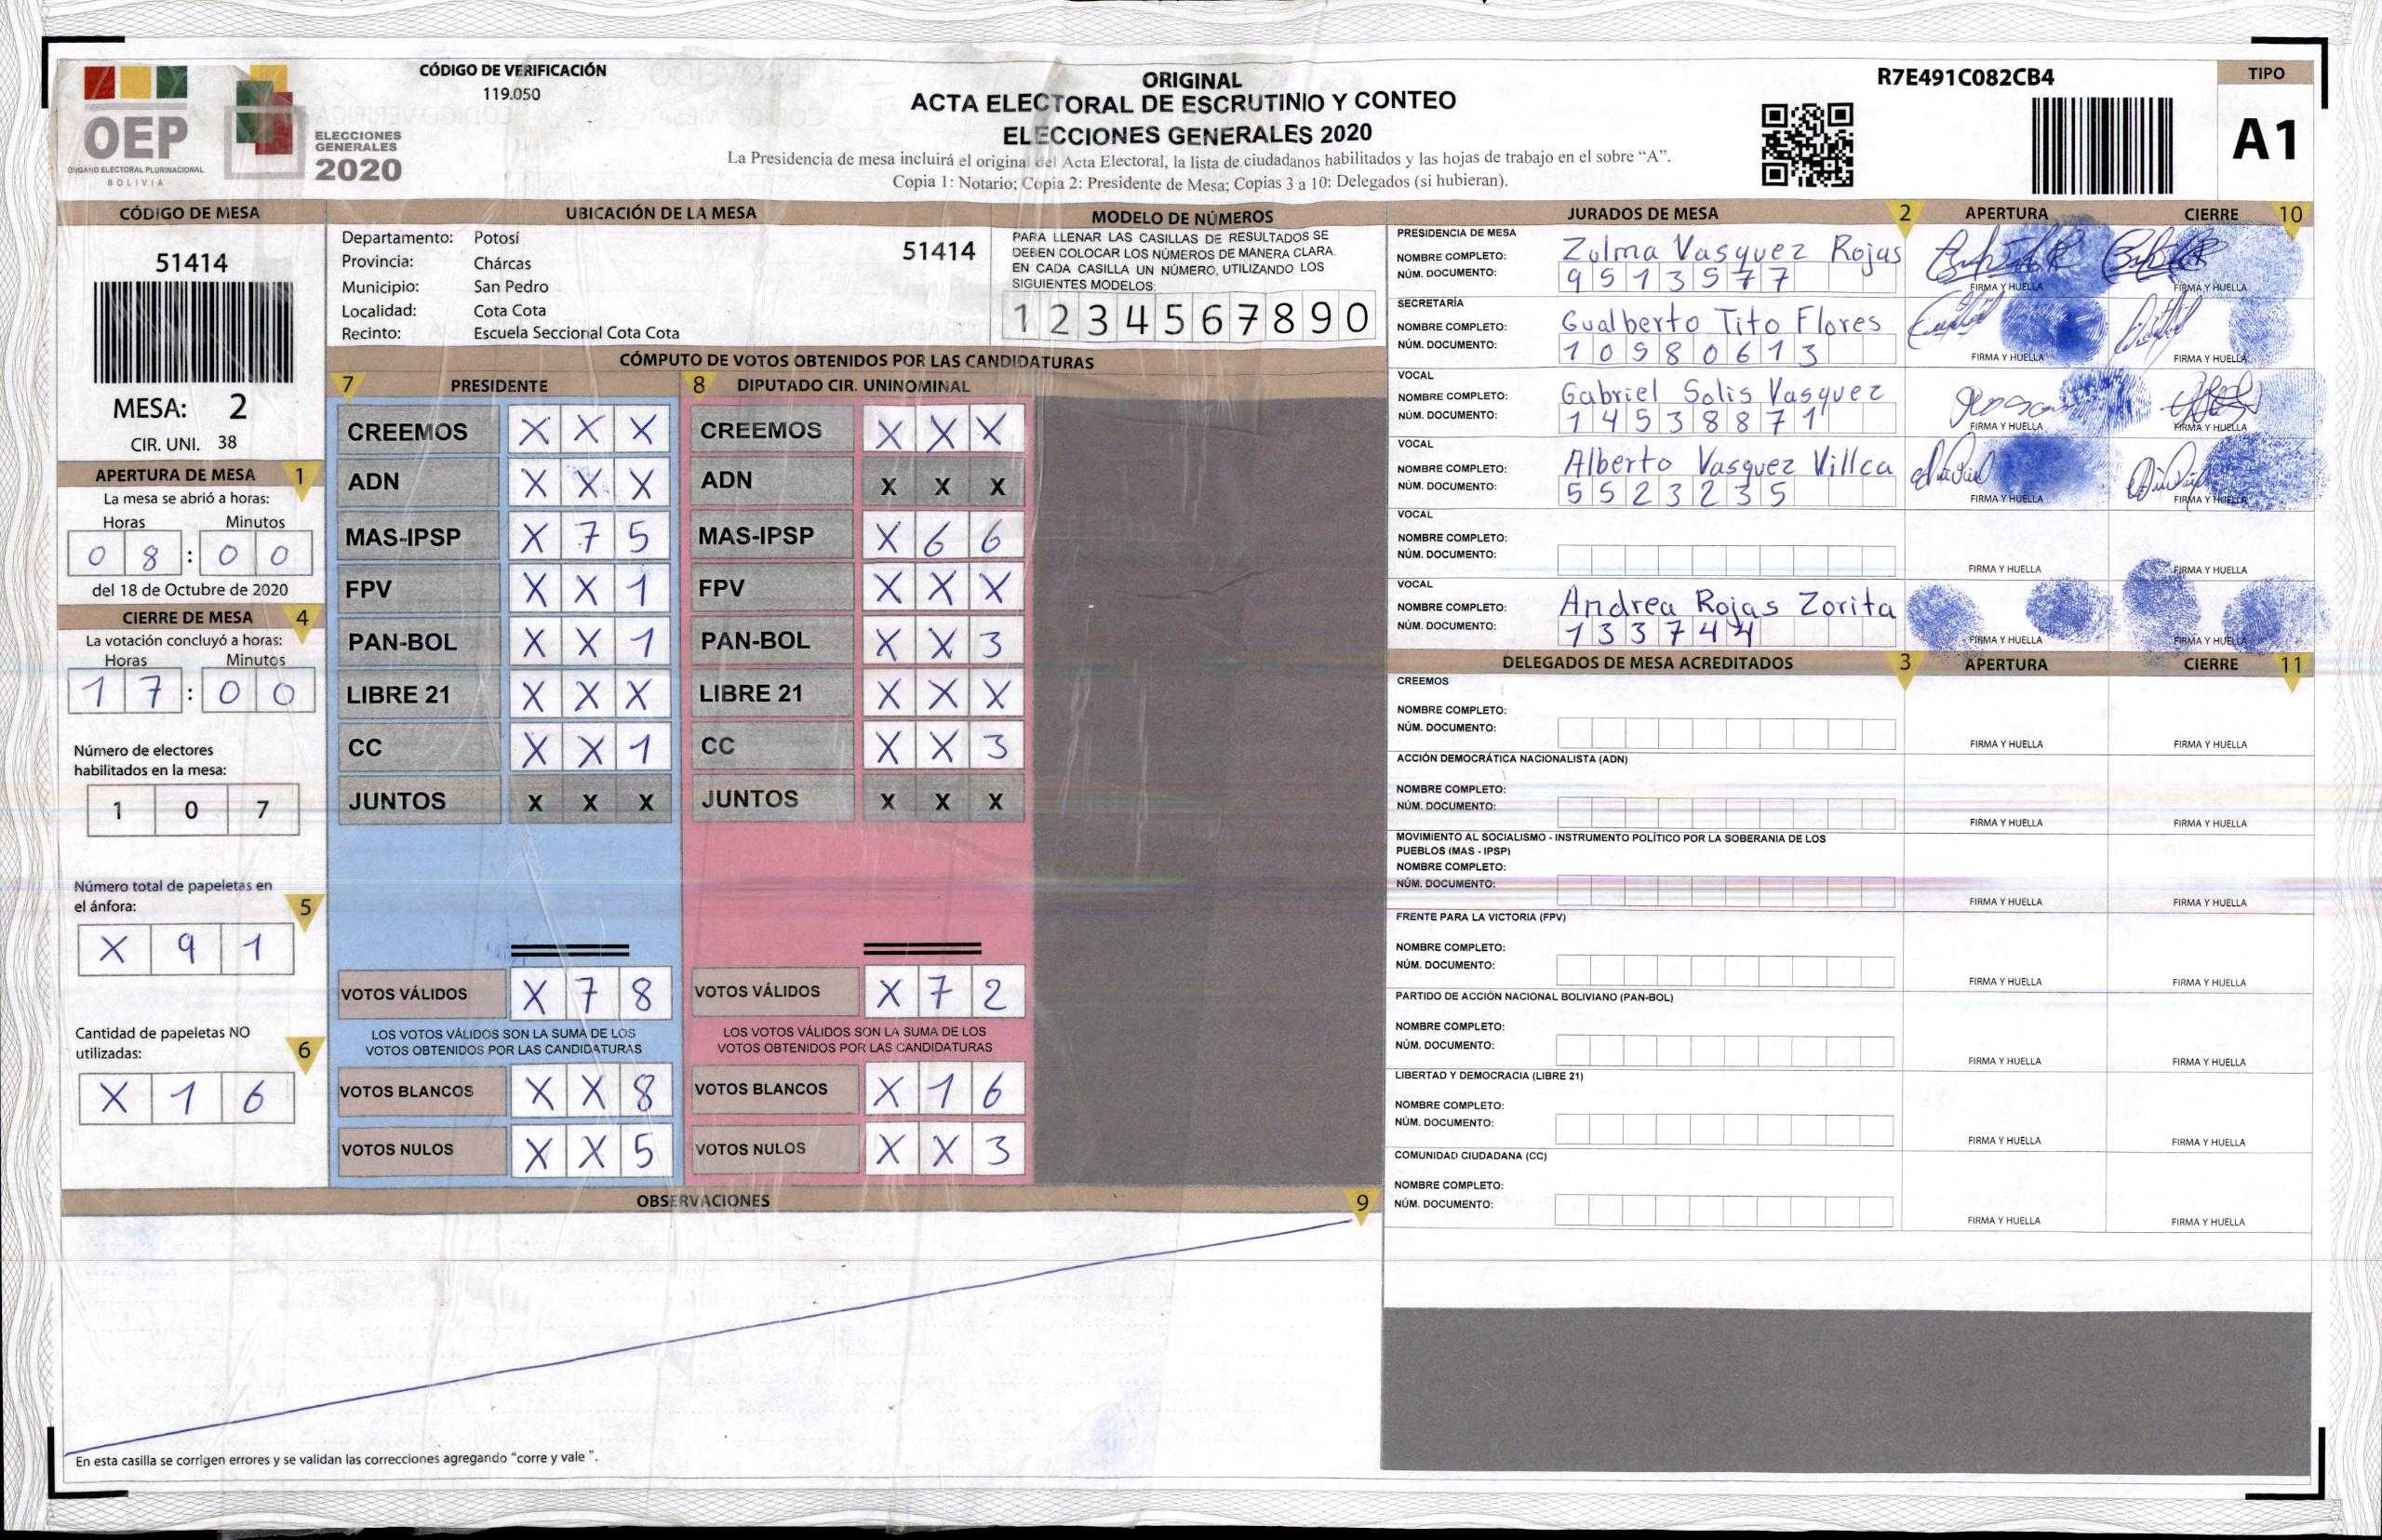 OEP
ÓRGANO ELECTORAL PLURINACIONAL
BOLIVIA
ELECCIONES
GENERALES
2020
CÓDIGO DE VERIFICACIÓN
119.050
ORIGINAL
ACTA ELECTORAL DE ESCRUTINIO Y CONTEO
ELECCIONES GENERALES 2020
La Presidencia de mesa incluirá el original del Acta Electoral, la lista de ciudadanos habilitados y las hojas de trabajo en el sobre “A”.
Copia 1: Notario; Copia 2: Presidente de Mesa; Copias 3 a 10: Delegados (si hubieran).
R7E491C082CB4
TIPO
A1
CÓDIGO DE MESA
51414
MESA: 2
CIR. UNI. 38
APERTURA DE MESA 1
La mesa se abrió a horas:
Horas Minutos
0 8 : 0 0
del 18 de Octubre de 2020
CIERRE DE MESA 4
La votación concluyó a horas:
Horas Minutos
1 7 : 0 0
Número de electores
habilitados en la mesa:
1 0 7
Número total de papeletas en
el ánfora: 5
X 9 1
Cantidad de papeletas NO
utilizadas: 6
X 1 6
UBICACIÓN DE LA MESA
Departamento: Potosí
51414
Provincia: Chárcas
Municipio: San Pedro
Localidad: Cota Cota
Recinto: Escuela Seccional Cota Cota
MODELO DE NÚMEROS
PARA LLENAR LAS CASILLAS DE RESULTADOS SE
DEBEN COLOCAR LOS NÚMEROS DE MANERA CLARA.
EN CADA CASILLA UN NÚMERO, UTILIZANDO LOS
SIGUIENTES MODELOS:
1 2 3 4 5 6 7 8 9 0
CÓMPUTO DE VOTOS OBTENIDOS POR LAS CANDIDATURAS
7 PRESIDENTE 8 DIPUTADO CIR. UNINOMINAL
CREEMOS X X X CREEMOS X X X
ADN X X X ADN X X X
MAS-IPSP X 7 5 MAS-IPSP X 6 6
FPV X X 1 FPV X X X
PAN-BOL X X 1 PAN-BOL X X 3
LIBRE 21 X X X LIBRE 21 X X X
CC X X 1 CC X X 3
JUNTOS X X X JUNTOS X X X
VOTOS VÁLIDOS X 7 8 VOTOS VÁLIDOS X 7 2
LOS VOTOS VÁLIDOS SON LA SUMA DE LOS LOS VOTOS VÁLIDOS SON LA SUMA DE LOS
VOTOS OBTENIDOS POR LAS CANDIDATURAS VOTOS OBTENIDOS POR LAS CANDIDATURAS
VOTOS BLANCOS X X 8 VOTOS BLANCOS X 1 6
VOTOS NULOS X X 5 VOTOS NULOS X X 3
OBSERVACIONES 9
En esta casilla se corrigen errores y se validan las correcciones agregando “corre y vale ”.
JURADOS DE MESA 2 APERTURA CIERRE 10
PRESIDENCIA DE MESA
NOMBRE COMPLETO: Zulma Vasquez Rojas
NÚM. DOCUMENTO: 9 5 1 3 5 7 7
FIRMA Y HUELLA FIRMA Y HUELLA
SECRETARÍA
NOMBRE COMPLETO: Gualberto Tito Flores
NÚM. DOCUMENTO: 1 0 5 8 0 6 1 3
FIRMA Y HUELLA FIRMA Y HUELLA
VOCAL
NOMBRE COMPLETO: Gabriel Solis Vasquez
NÚM. DOCUMENTO: 1 4 5 3 8 8 7 1
FIRMA Y HUELLA FIRMA Y HUELLA
VOCAL
NOMBRE COMPLETO: Alberto Vasquez Villca
NÚM. DOCUMENTO: 5 5 2 3 2 3 5
FIRMA Y HUELLA FIRMA Y HUELLA
VOCAL
NOMBRE COMPLETO:
NÚM. DOCUMENTO:
FIRMA Y HUELLA FIRMA Y HUELLA
VOCAL
NOMBRE COMPLETO: Andrea Rojas Zorita
NÚM. DOCUMENTO: 1 3 3 7 4 4
FIRMA Y HUELLA FIRMA Y HUELLA
DELEGADOS DE MESA ACREDITADOS 3 APERTURA CIERRE 11
CREEMOS
NOMBRE COMPLETO:
NÚM. DOCUMENTO:
FIRMA Y HUELLA FIRMA Y HUELLA
ACCIÓN DEMOCRÁTICA NACIONALISTA (ADN)
NOMBRE COMPLETO:
NÚM. DOCUMENTO:
FIRMA Y HUELLA FIRMA Y HUELLA
MOVIMIENTO AL SOCIALISMO - INSTRUMENTO POLÍTICO POR LA SOBERANIA DE LOS
PUEBLOS (MAS - IPSP)
NOMBRE COMPLETO:
NÚM. DOCUMENTO:
FIRMA Y HUELLA FIRMA Y HUELLA
FRENTE PARA LA VICTORIA (FPV)
NOMBRE COMPLETO:
NÚM. DOCUMENTO:
FIRMA Y HUELLA FIRMA Y HUELLA
PARTIDO DE ACCIÓN NACIONAL BOLIVIANO (PAN-BOL)
NOMBRE COMPLETO:
NÚM. DOCUMENTO:
FIRMA Y HUELLA FIRMA Y HUELLA
LIBERTAD Y DEMOCRACIA (LIBRE 21)
NOMBRE COMPLETO:
NÚM. DOCUMENTO:
FIRMA Y HUELLA FIRMA Y HUELLA
COMUNIDAD CIUDADANA (CC)
NOMBRE COMPLETO:
NÚM. DOCUMENTO:
FIRMA Y HUELLA FIRMA Y HUELLA